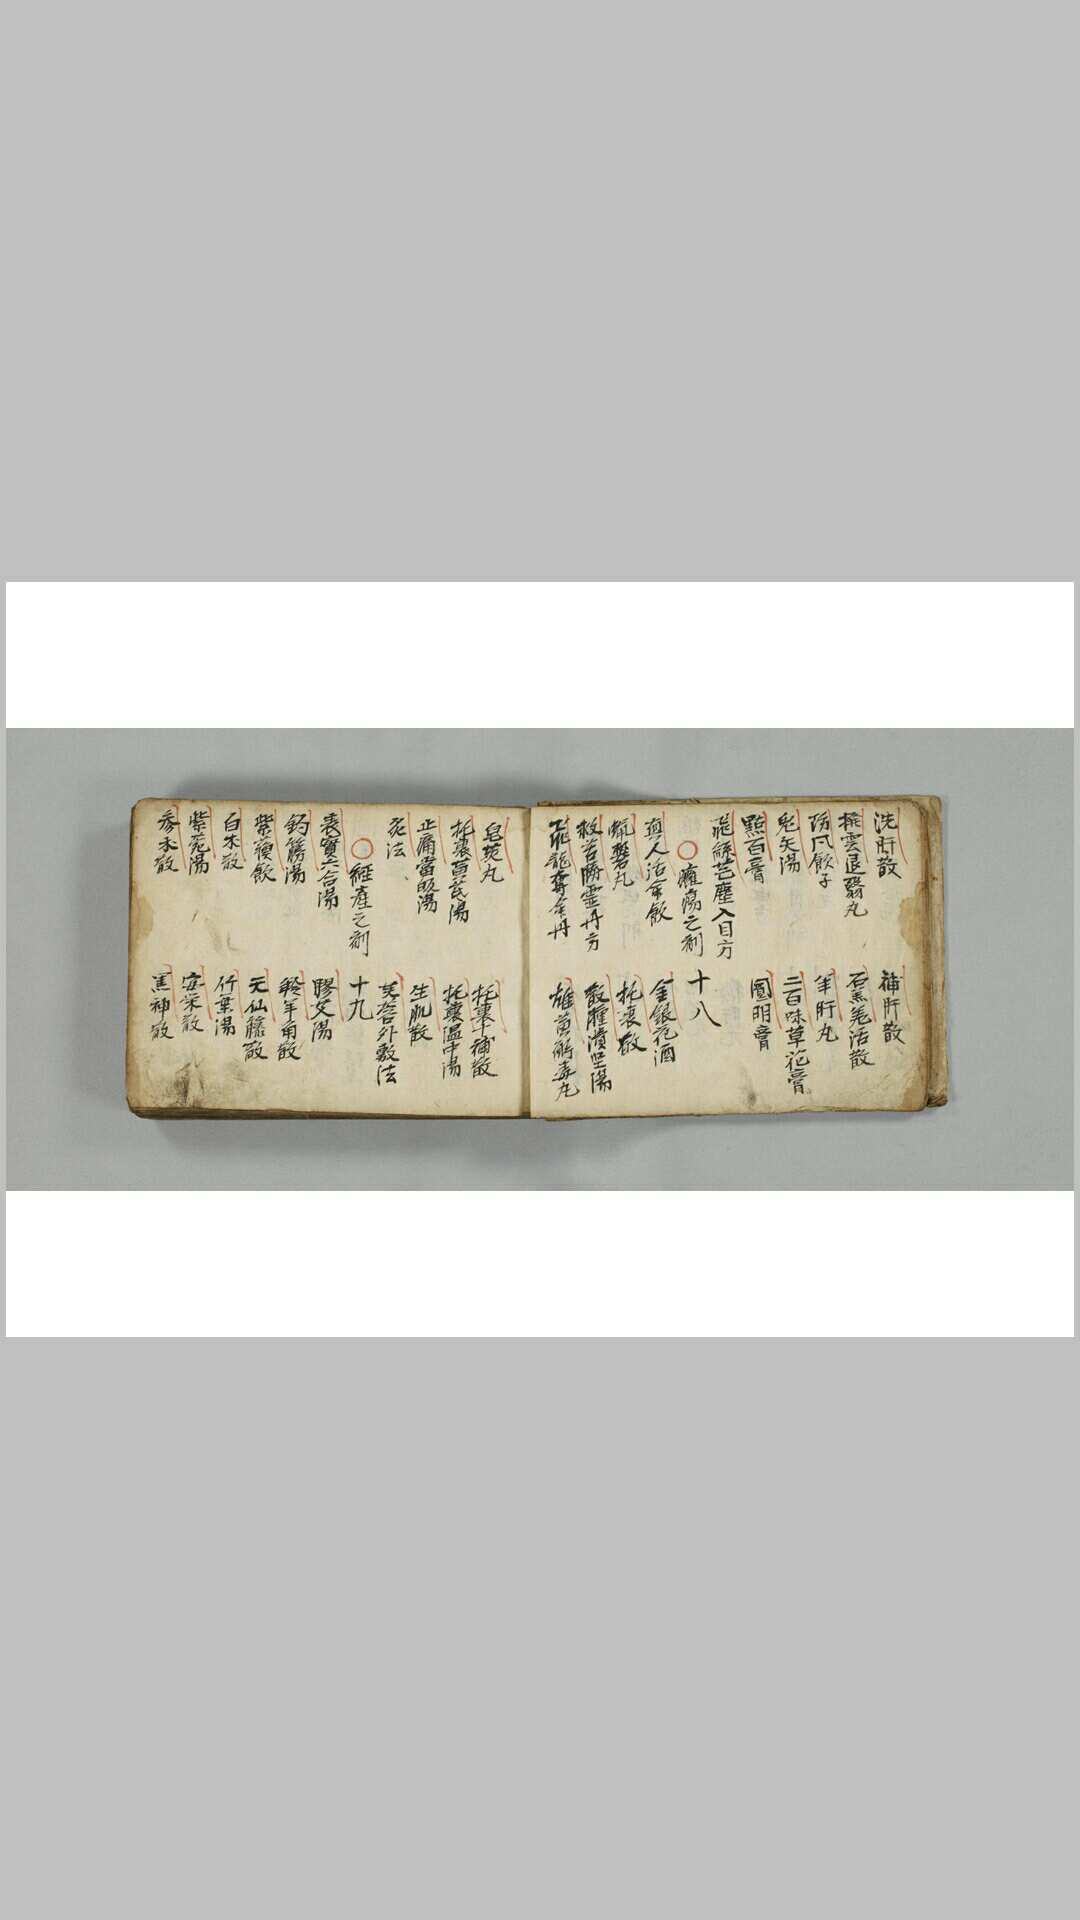 洗肝散
補肝散
撥雲退翳丸
石膏羌活散
防風飲子
羊肝丸
兔矢湯
二百味草花膏
點百膏
圓明膏
飛絲芒塵入目方
○癰瘍之劑
十八
真人活命飲
金銀花酒
蠟礬丸
托裏散
救苦勝靈丹方
散腫潰堅湯
飛龍奪命丹
雄黃解毒丸
皂莢丸
托裏十補散
托裏黃芪湯
托裏溫中湯
止痛當皈湯
生肌散
灸法
芙蓉外敷法
○經產之劑
十九
表實六合湯
膠艾湯
鈎藤湯
羚羊角散
紫蘇飲
天仙藤散
白朮散
竹葉湯
紫菀湯
安榮散
參朮散
黑神散